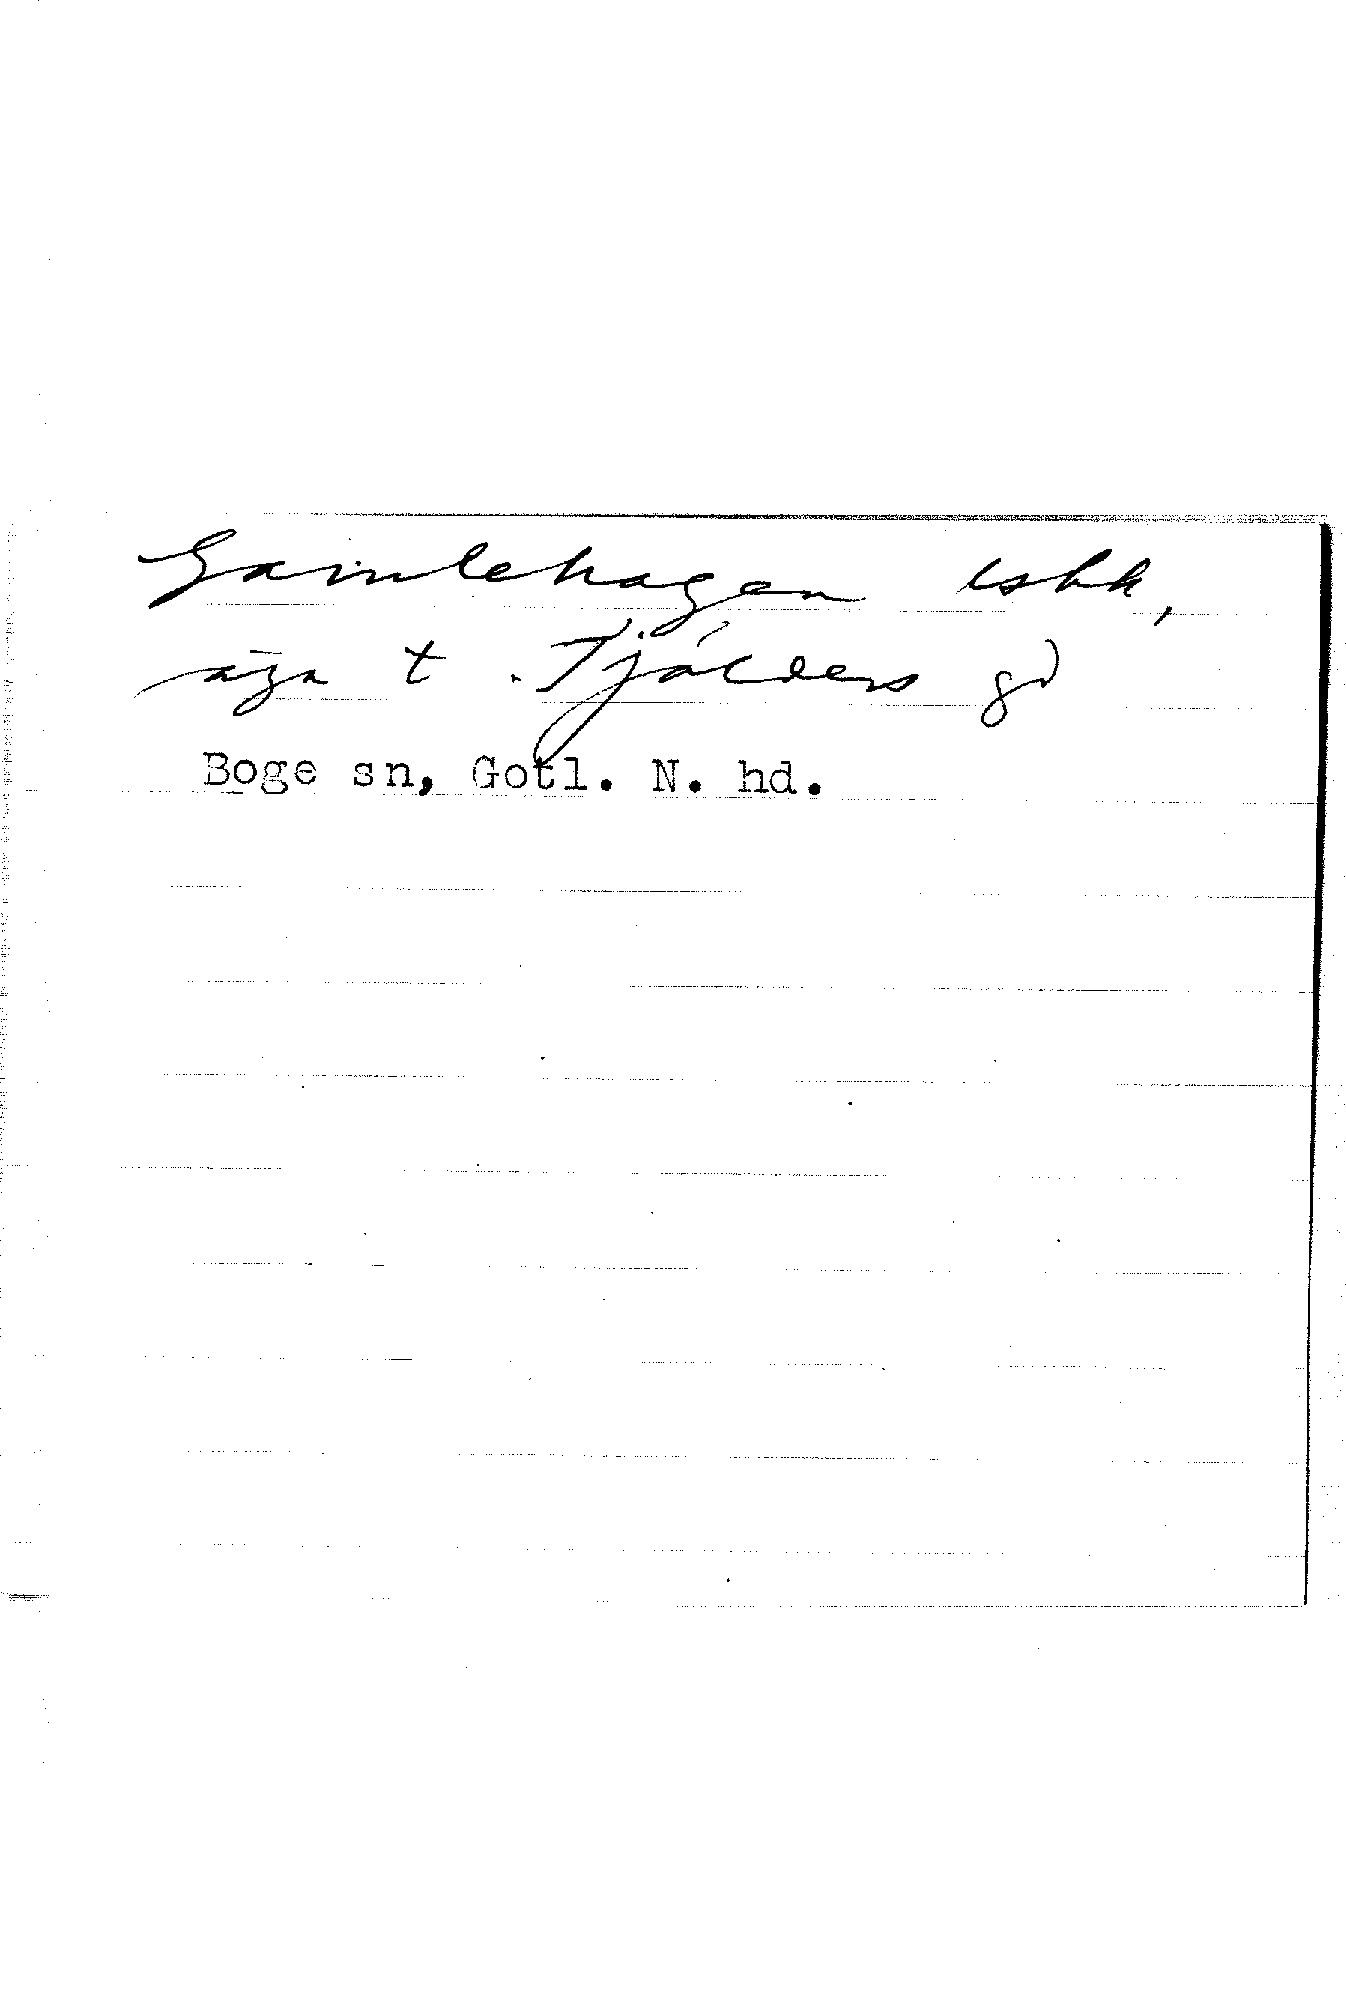 Gamlehagen lshk,
äga t. Tjälders gd
Boge sn, Gotl. N. hd.